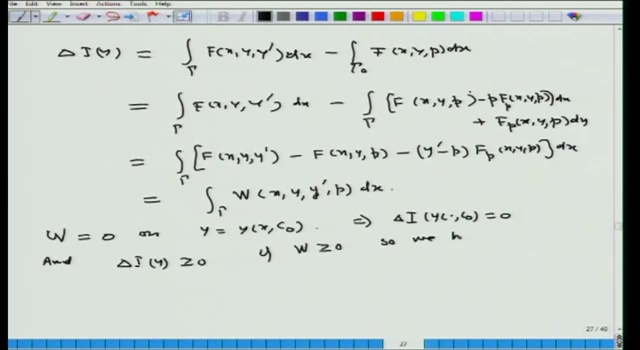 View Insert Actions Tools Help
Δ I(y) = ∫_Γ F(x, y, y') dx − ∫_Γ₀ F(x, y, p) dx
= ∫_Γ F(x, y, y') dx − ∫_Γ [F(x, y, p) − p F_p(x, y, p)] dx
+ F_p(x, y, p) dy
= ∫_Γ [F(x, y, y') − F(x, y, p) − (y' − p) F_p(x, y, p)] dx
= ∫_Γ W(x, y, y', p) dx.
W = 0 on y = y(x, C₀). ⇒ Δ I(y(·, C₀) = 0
And Δ I(y) ≥ 0 if W ≥ 0 so we h
27 / 40
27